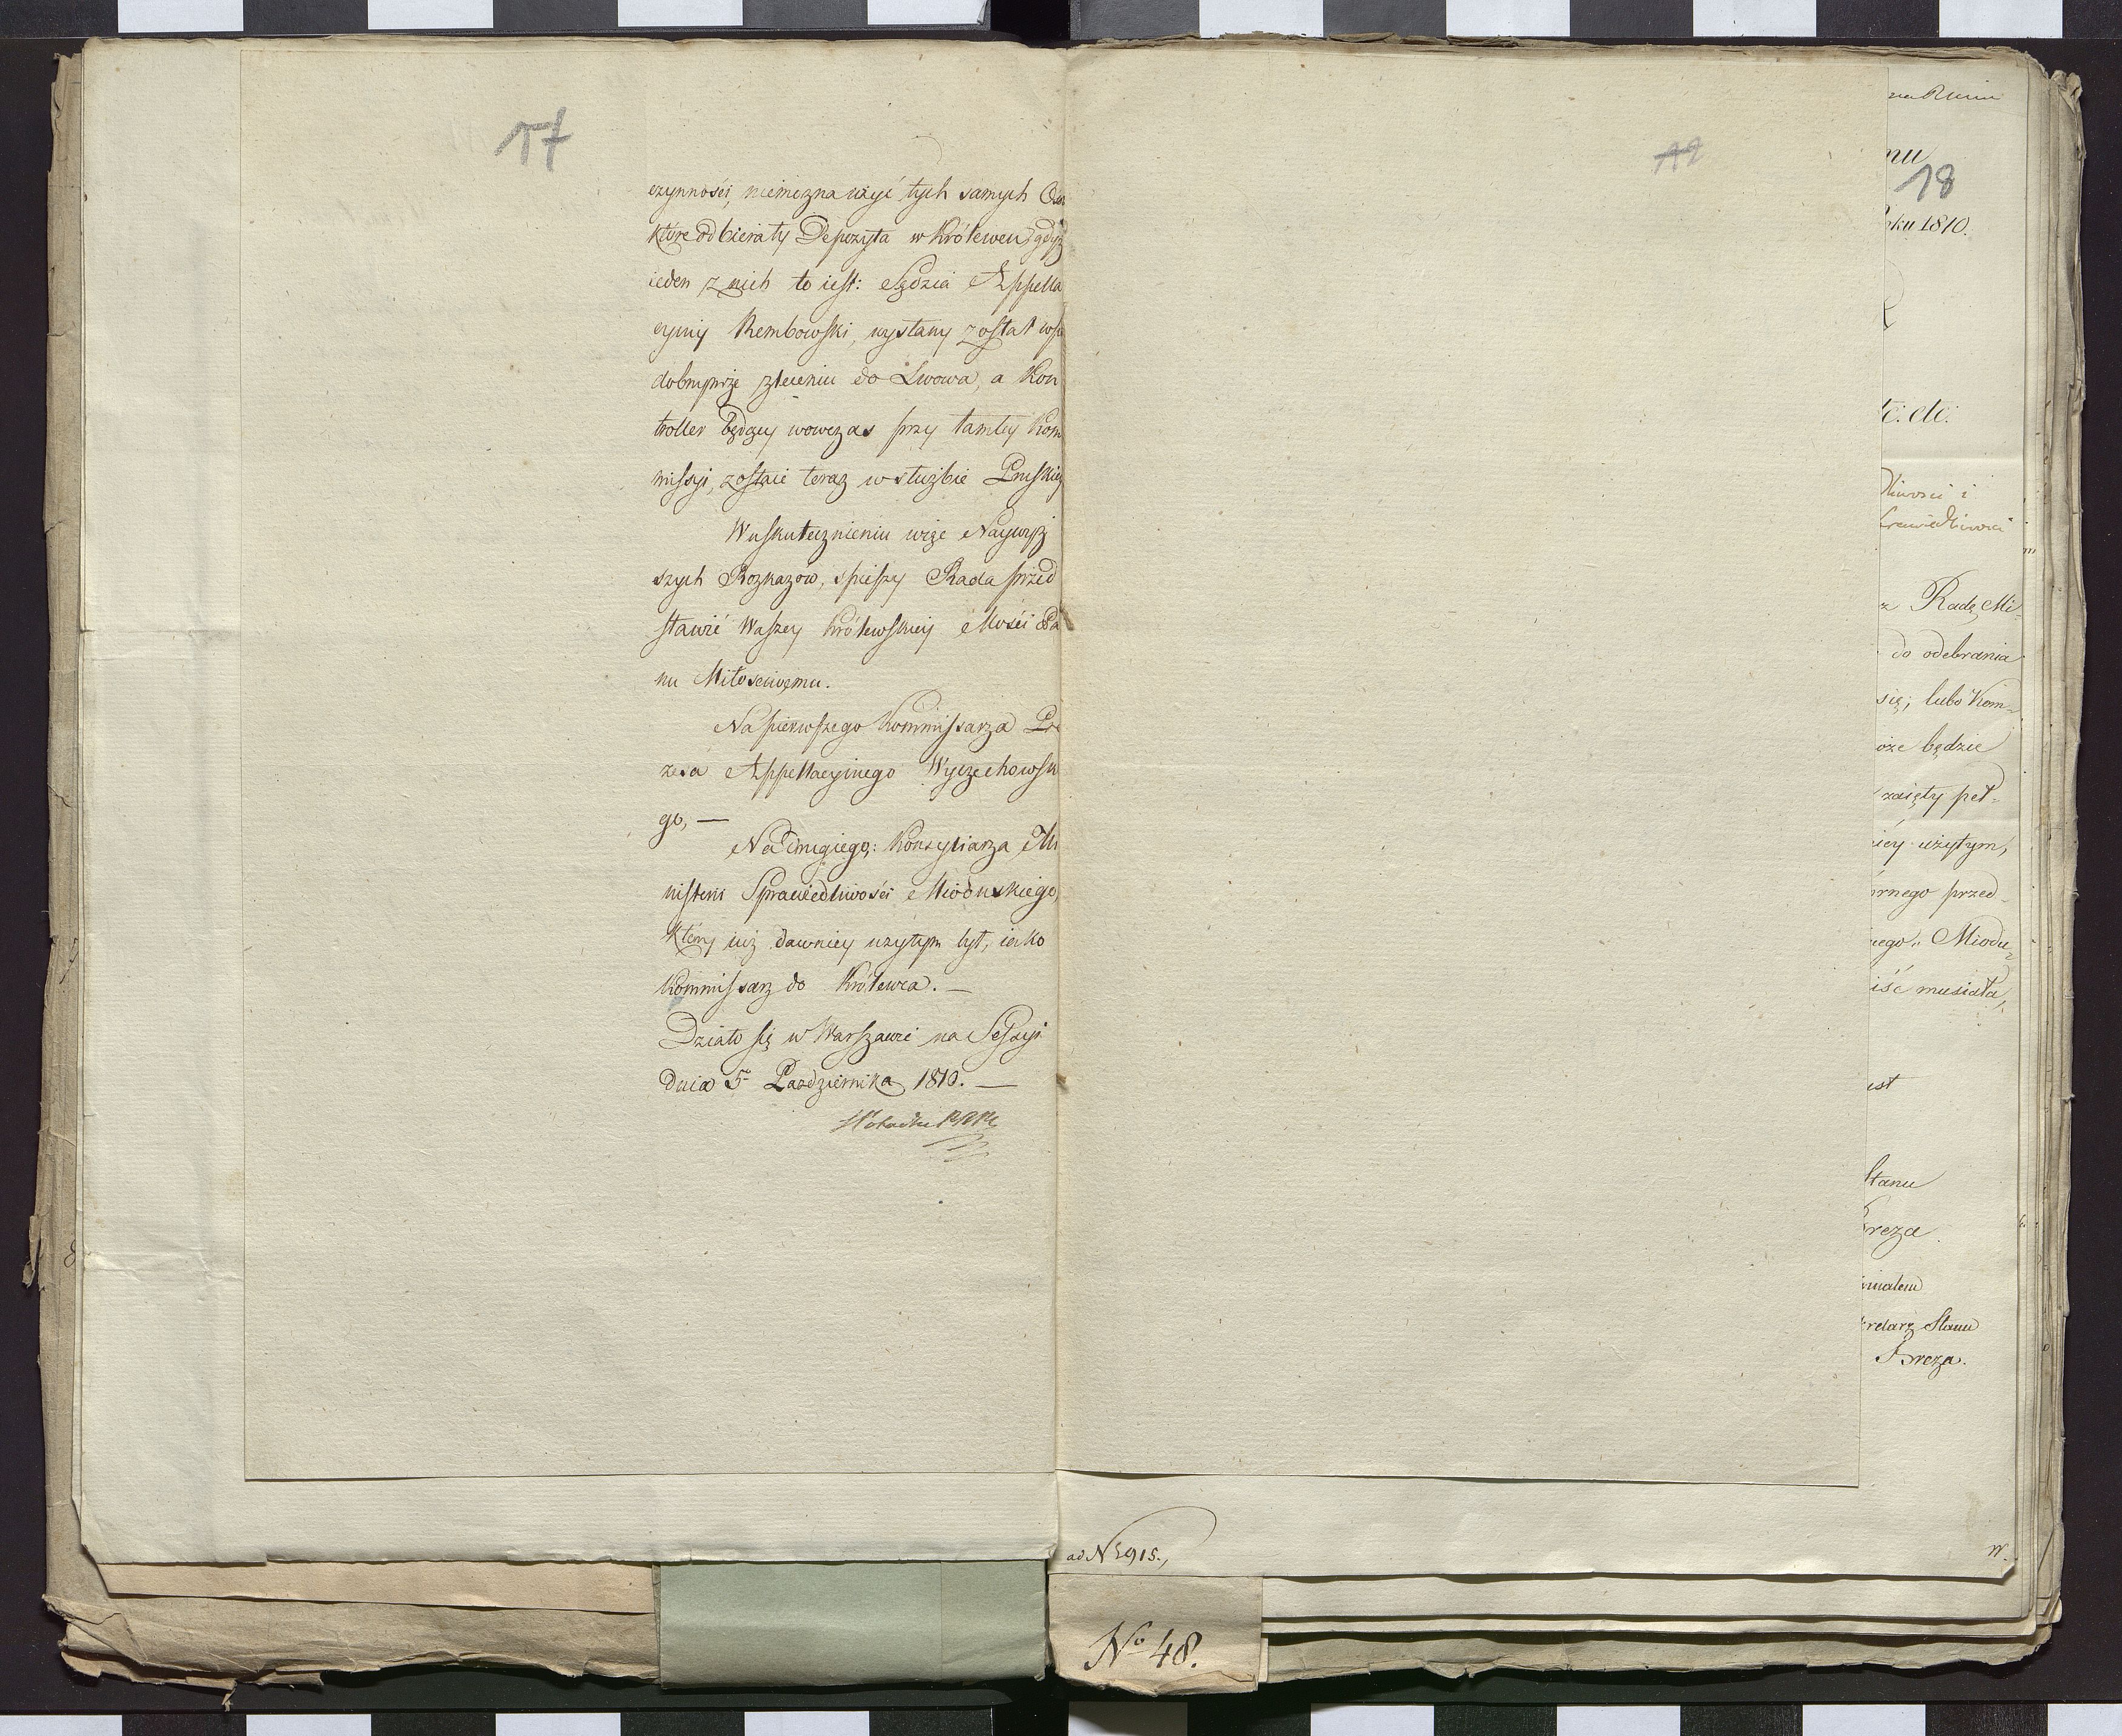 17
czynności, niemożna użyć tych samych
które odbierały Depozyta w Królewcu, gdyż
ieden z nich to iest: Sędzia Appella
cyiny Rembowski, wysłany został
zleceniu do Lwowa, a Kon
troller będący wowczas przy tamtey Kom
missyi, zostaie teraz w służbie Pruskiey
W uskutecznieniu więc Naywyż
szych Rozkazow, spieszy Rada przed
stawić Waszey Królewskiey Mości Pa
nu Miłosciwemu.
Na pierwszego Kommissarza Pre
zesa Appellacyinego Wyczechowski
ego, —
Na drugiego: Konsyliarza Mi
nisteri Sprawiedliwości Mioduskiego,
który iuż dawniey użytym był, iako
Kommissarz do Królewca. —
Działo się w Warszawie na Sessyi
dnia 5 Pazdziernika 1810. —
19
mu
18
oku 1810.
tc: etc:
dliwosci i
Sprawiedliwosci
z Radę Mi-
do odebrania
się, lubo Kom-
oże będzie
zaięty peł-
iey użytym,
órnego przed-
iego: Miodu-
iść musiała,
est
Stanu
Breza.
kretarz Stanu
Breza.
ad N 5915.,
No 48.